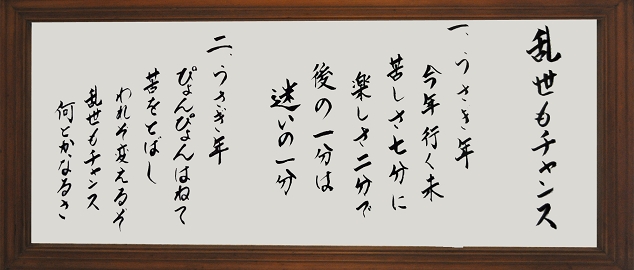 乱世もチャンス
一、うさぎ年
今年行く末
苦しさ七分に
楽しさ二分で
後の一分は
迷いの一分
二、うさぎ年
ぴょんぴょんはねて
苦をとばし
われそ変えるぞ
乱世もチャンス
何とかなるさ